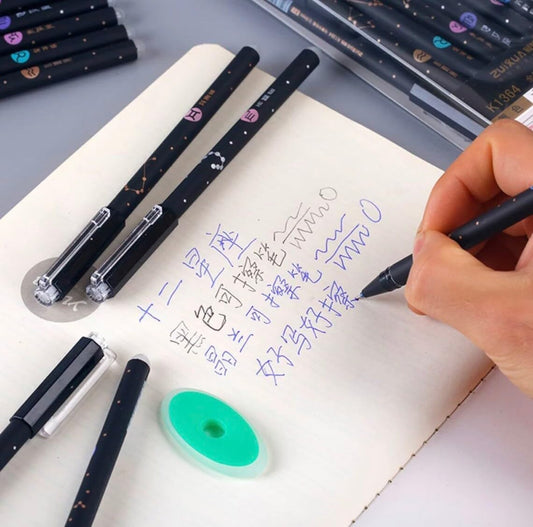 十二星座
黑色可擦笔
晶兰可擦笔
好写好擦
K1364